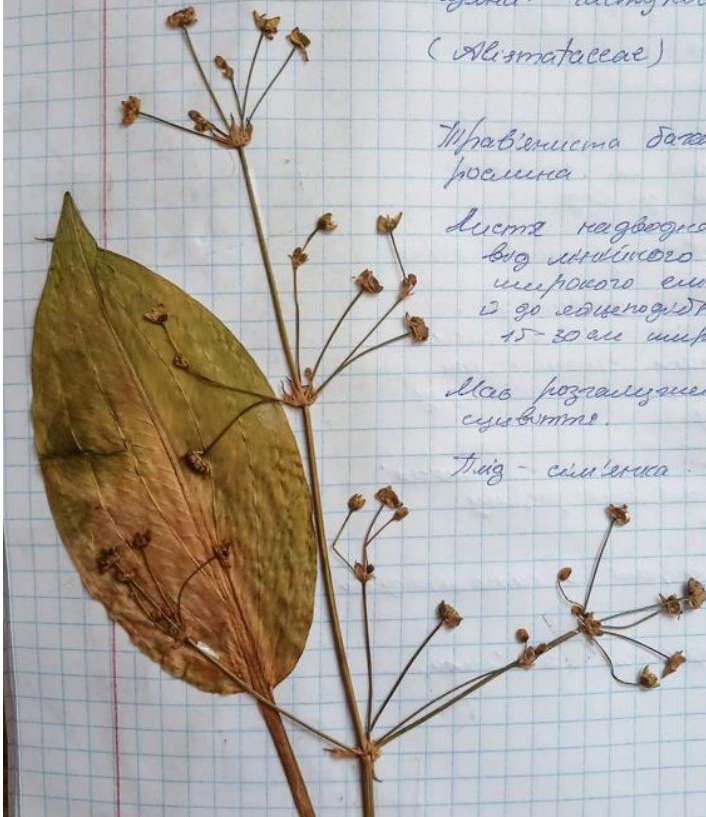 (Alismataceae)
Трав'яниста бага
рослина.
Листя надводне
від лінійного
широкого ели
й до яйцеподіб
15-30 см шир
Має розгалужен
суцвіття.
Плід - сім'янка.